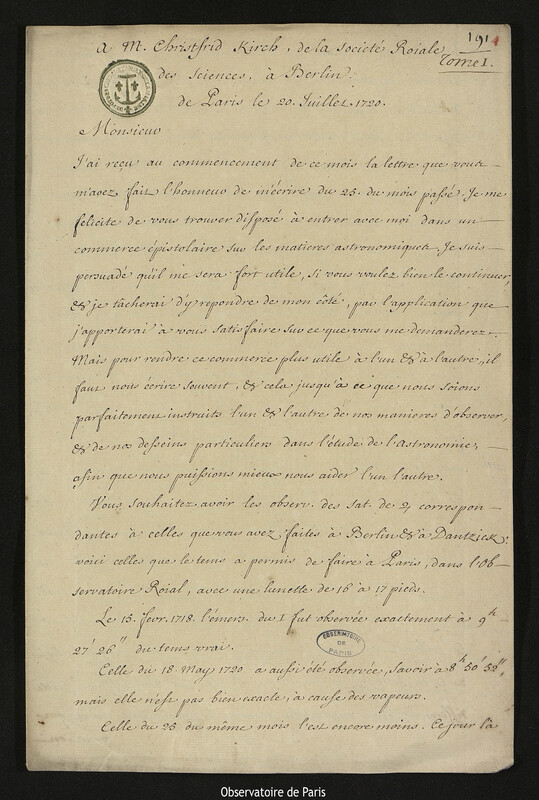 191
Tome I.
A M. Christfrid Kirch, de la Societé Roiale
des Sciences, à Berlin.
de Paris le 20. Juillet 1720.
Monsieur
J'ai reçu au commencement de ce mois la lettre que vous
m'avez fait l'honneur de m'écrire du 25. du mois passé. Je me
félicite de vous trouver disposé à entrer avec moi dans un
commerce épistolaire sur les matieres astronomiques. Je suis
persuadé qu'il me sera fort utile, si vous voulez bien le continuer,
& je tâcherai d'y repondre de mon côté, par l'application que
j'apporterai à vous satisfaire sur ce que vous me demanderez.
Mais pour rendre ce commerce plus utile à l'un & à l'autre, il
faut nous écrire souvent, & cela jusqu'à ce que nous soions
parfaitement instruits l'un & l'autre de nos manieres d'observer,
& de nos desseins particuliers dans l'étude de l'Astronomie,
afin que nous puissions mieux nous aider l'un l'autre.
Vous souhaitez avoir les observ. des sat. de ♃ correspon-
dantes à celles que vous avez faites à Berlin & à Dantzick:
voici celles que le tems a permis de faire à Paris, dans l'Ob-
servatoire Roial, avec une lunette de 16 à 17 pieds.
Le 15. fevr. 1718. l'émers. du I fut observée exactement à 9h
27' 26" du tems vrai.
OBSERVATOIRE
DE
PARIS
Celle du 18. May 1720 a aussi été observée, savoir à 8h 50' 58",
mais elle n'est pas bien exacte, à cause des vapeurs.
Celle du 25 du même mois l'est encore moins. Ce jour là
Observatoire de Paris